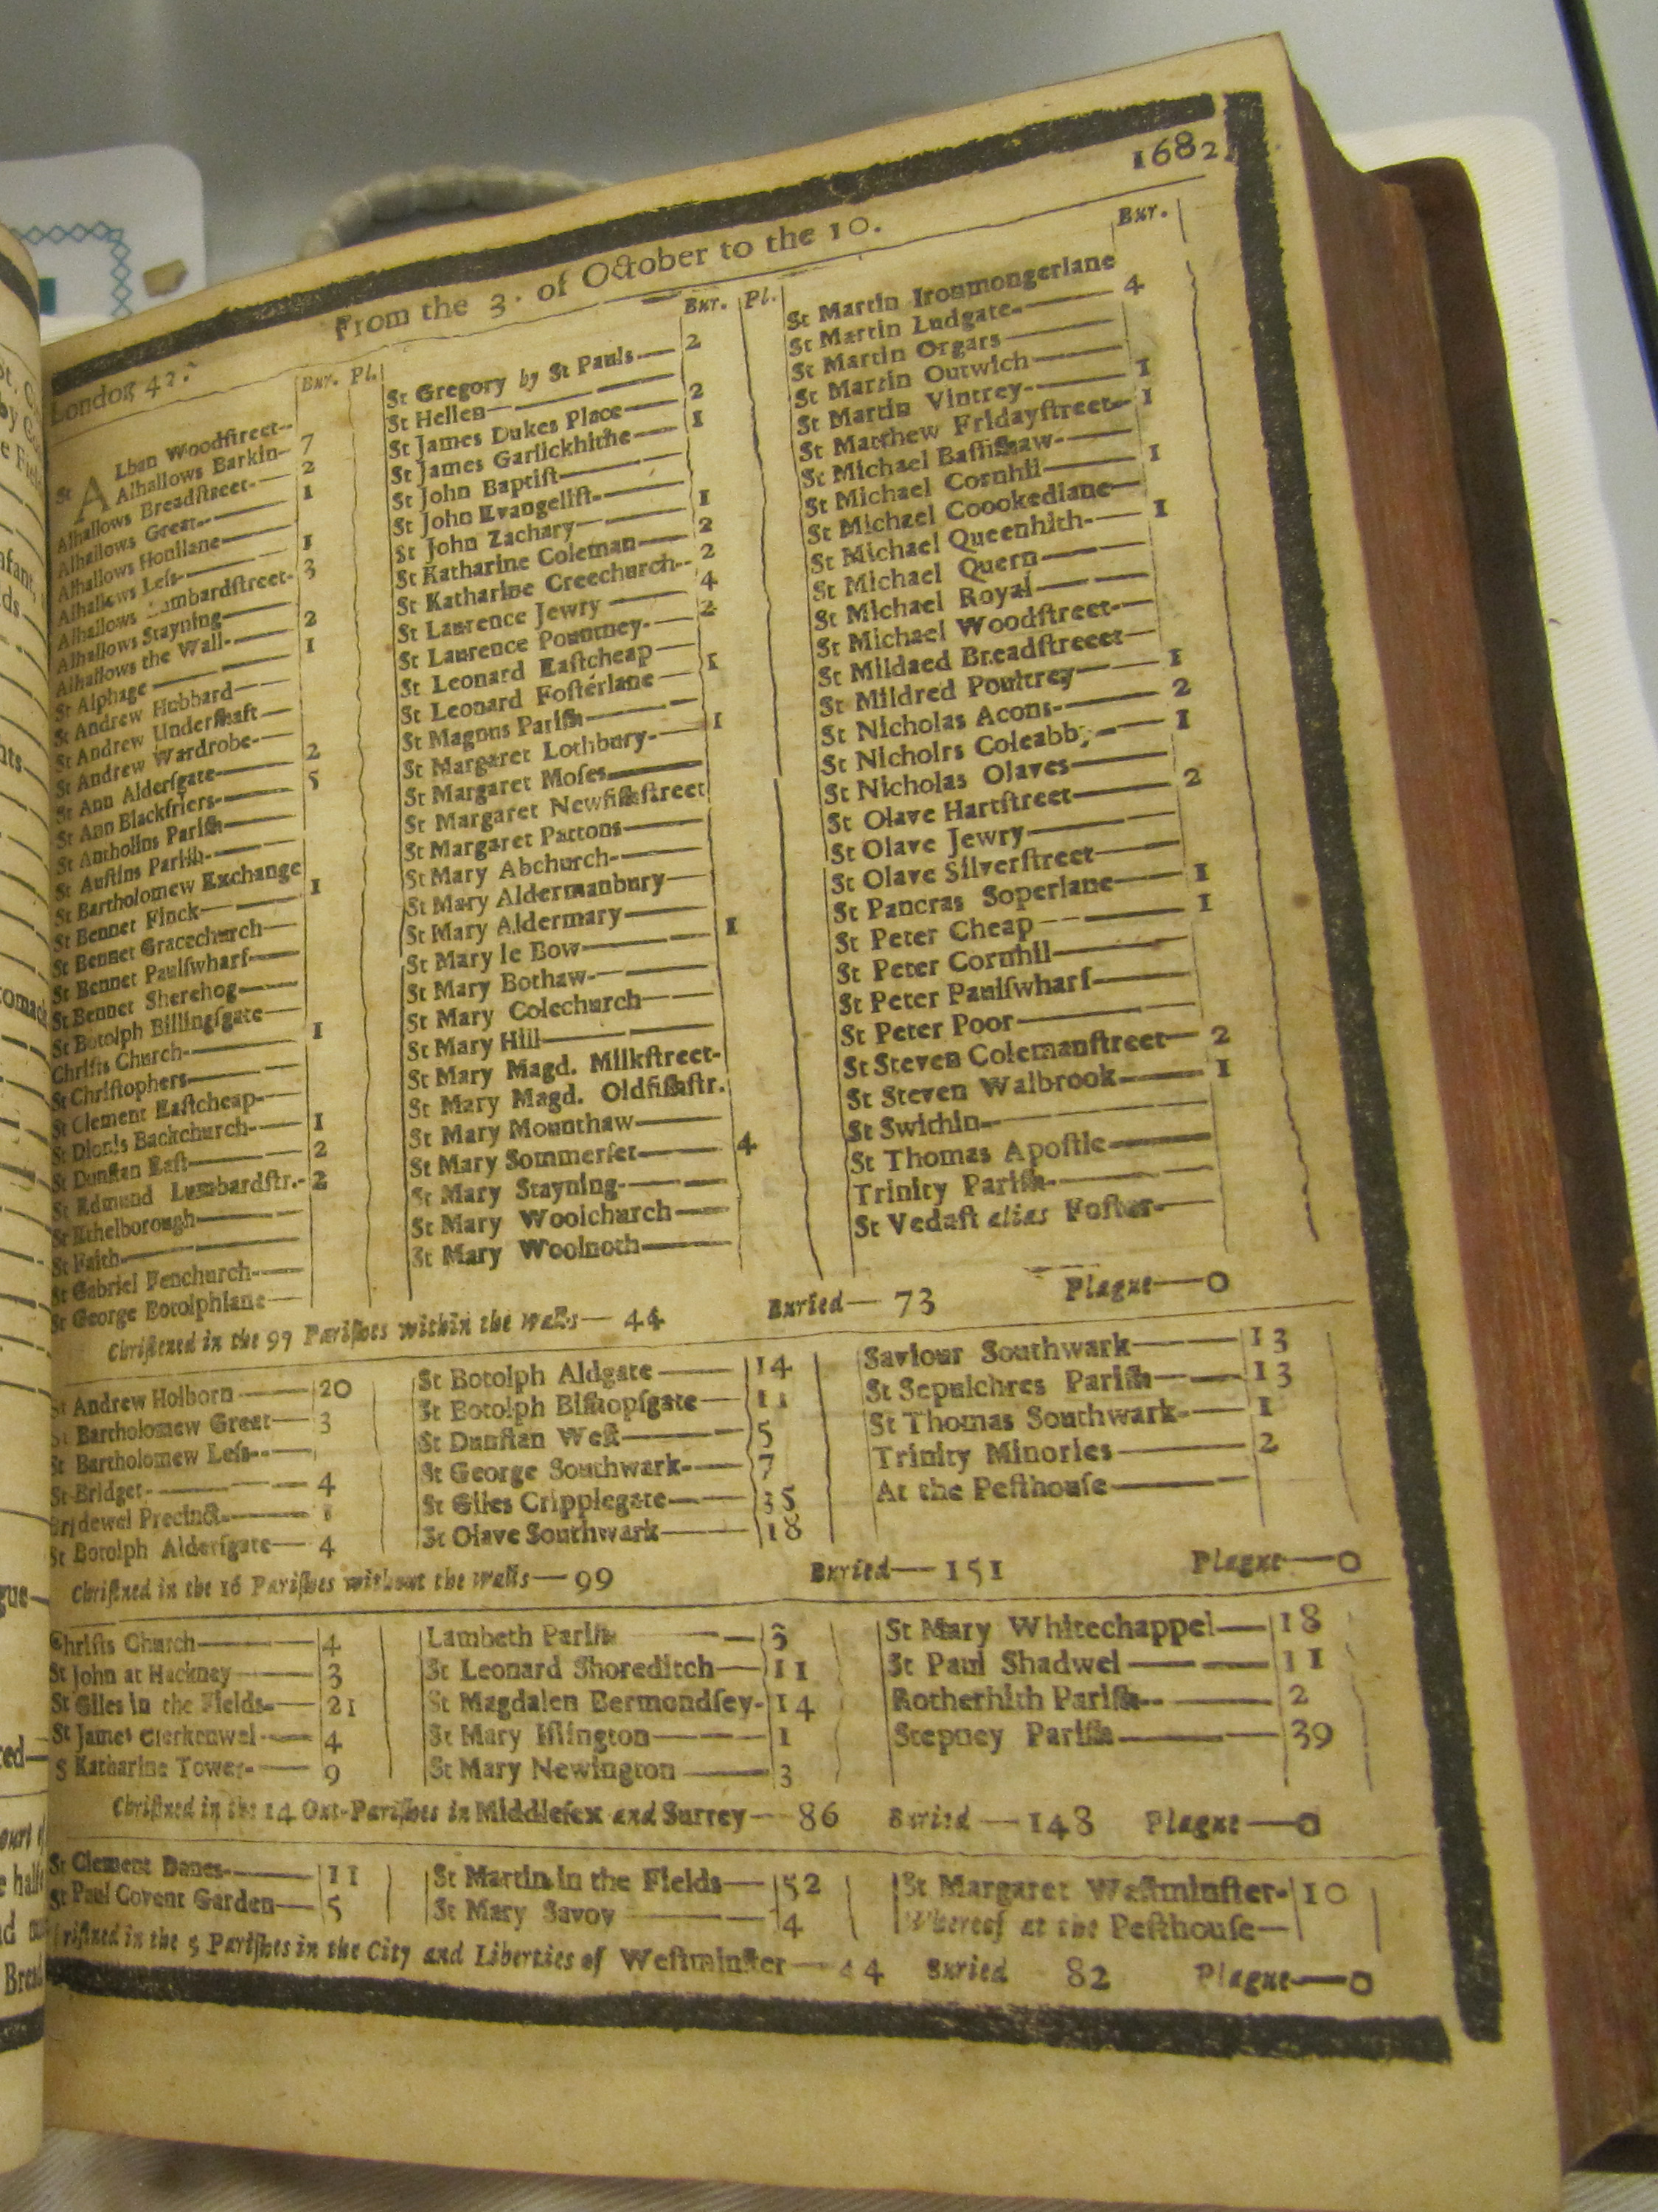 1682
London 42.
From the 3. of October to the 10.
Bur. Pl.
St ALban Woodſtreet
Alhallows Barkin 7
Alhallows Breadſtreet 2
Alhallows Great 1
Alhallows Honilane
Alhallows Leſs 1
Alhallows Lumbardſtreet 3
Alhallows Stayning
Alhallows the Wall 2
St Alphage 1
St Andrew Hubbard
St Andrew Underſhaft
St Andrew Wardrobe
St Ann Alderſgate 2
St Ann Blackfriers 5
St Antholins Pariſh
St Auſtins Pariſh
St Bartholomew Exchange
St Bennet Finck 1
St Bennet Gracechurch
St Bennet Paulſwharf
St Bennet Sherehog
St Botolph Billingſgate
Chriſts Church 1
St Chriſtophers
St Clement Eaſtcheap
St Dionis Backchurch 1
St Dunſtan Eaſt 2
St Edmund Lumbardſtr. 2
St Ethelborough
St Faith
St Gabriel Fenchurch
St George Botolphlane
Bur. Pl.
St Gregory by St Pauls 2
St Hellen
St James Dukes Place 2
St James Garlickhithe 1
St John Baptiſt
St John Evangeliſt
St John Zachary 1
St Katharine Coleman 2
St Katharine Creechurch 2
St Laurence Jewry 4
St Laurence Pountney 2
St Leonard Eaſtcheap
St Leonard Foſterlane 1
St Magnus Pariſh
St Margaret Lothbury 1
St Margaret Moſes
St Margaret Newfiſhſtreet
St Margaret Pattons
St Mary Abchurch
St Mary Aldermanbury
St Mary Aldermary
St Mary le Bow 1
St Mary Bothaw
St Mary Colechurch
St Mary Hill
St Mary Magd. Milkſtreet
St Mary Magd. Oldfiſhſtr.
St Mary Mounthaw
St Mary Sommerſet 4
St Mary Stayning
St Mary Woolchurch
St Mary Woolnoth
Bur.
St Martin Ironmongerlane
St Martin Ludgate 4
St Martin Orgars
St Martin Outwich
St Martin Vintrey 1
St Matthew Fridayſtreet 1
St Michael Baſſiſhaw
St Michael Cornhil 1
St Michael Coookedlane
St Michael Queenhith 1
St Michael Quern
St Michael Royal
St Michael Woodſtreet
St Mildaed Breadſtreeet
St Mildred Poultrey 1
St Nicholas Acons 2
St Nicholrs Coleabby 1
St Nicholas Olaves
St Olave Hartſtreet 2
St Olave Jewry
St Olave Silverſtreet
St Pancras Soperlane 1
St Peter Cheap 1
St Peter Cornhil
St Peter Paulſwharf
St Peter Poor
St Steven Colemanſtreet 2
St Steven Walbrook 1
St Swithin
St Thomas Apoſtle
Trinity Pariſh
St Vedaſt alias Foſter
Chriſtened in the 97 Pariſhes within the walls— 44 Buried— 73 Plague—0
St Andrew Holborn 20
St Bartholomew Great 3
St Bartholomew Leſs
St Bridget 4
Bridewel Precinct 1
St Botolph Alderſgate 4
St Botolph Aldgate 14
St Botolph Biſhopſgate 11
St Dunſtan Weſt 5
St George Southwark 7
St Giles Cripplegate 35
St Olave Southwark 18
Saviour Southwark 13
St Sepulchres Pariſh 13
St Thomas Southwark 1
Trinity Minories 2
At the Peſthouſe
Chriſtned in the 16 Pariſhes without the walls—99 Buried—151 Plague—0
Chriſts Church 4
St John at Hackney 3
St Giles in the Fields 21
St James Clerkenwel 4
S Katharine Tower 9
Lambeth Pariſh
St Leonard Shoreditch 11
St Magdalen Bermondſey 14
St Mary Iſlington 1
St Mary Newington 3
St Mary Whitechappel 18
St Paul Shadwel 11
Rotherhith Pariſh 2
Stepney Pariſh 39
Chriſtned in the 14 Out-Pariſhes in Middleſex and Surrey—86 Buried—148 Plague—0
St Clement Danes 11
St Paul Covent Garden 5
St Martin in the Fields 52
St Mary Savoy 4
St Margaret Weſtminſter 10
Whereof at the Peſthouſe—
Chriſtned in the 5 Pariſhes in the City and Liberties of Weſtminſter—44 Buried 82 Plague—0